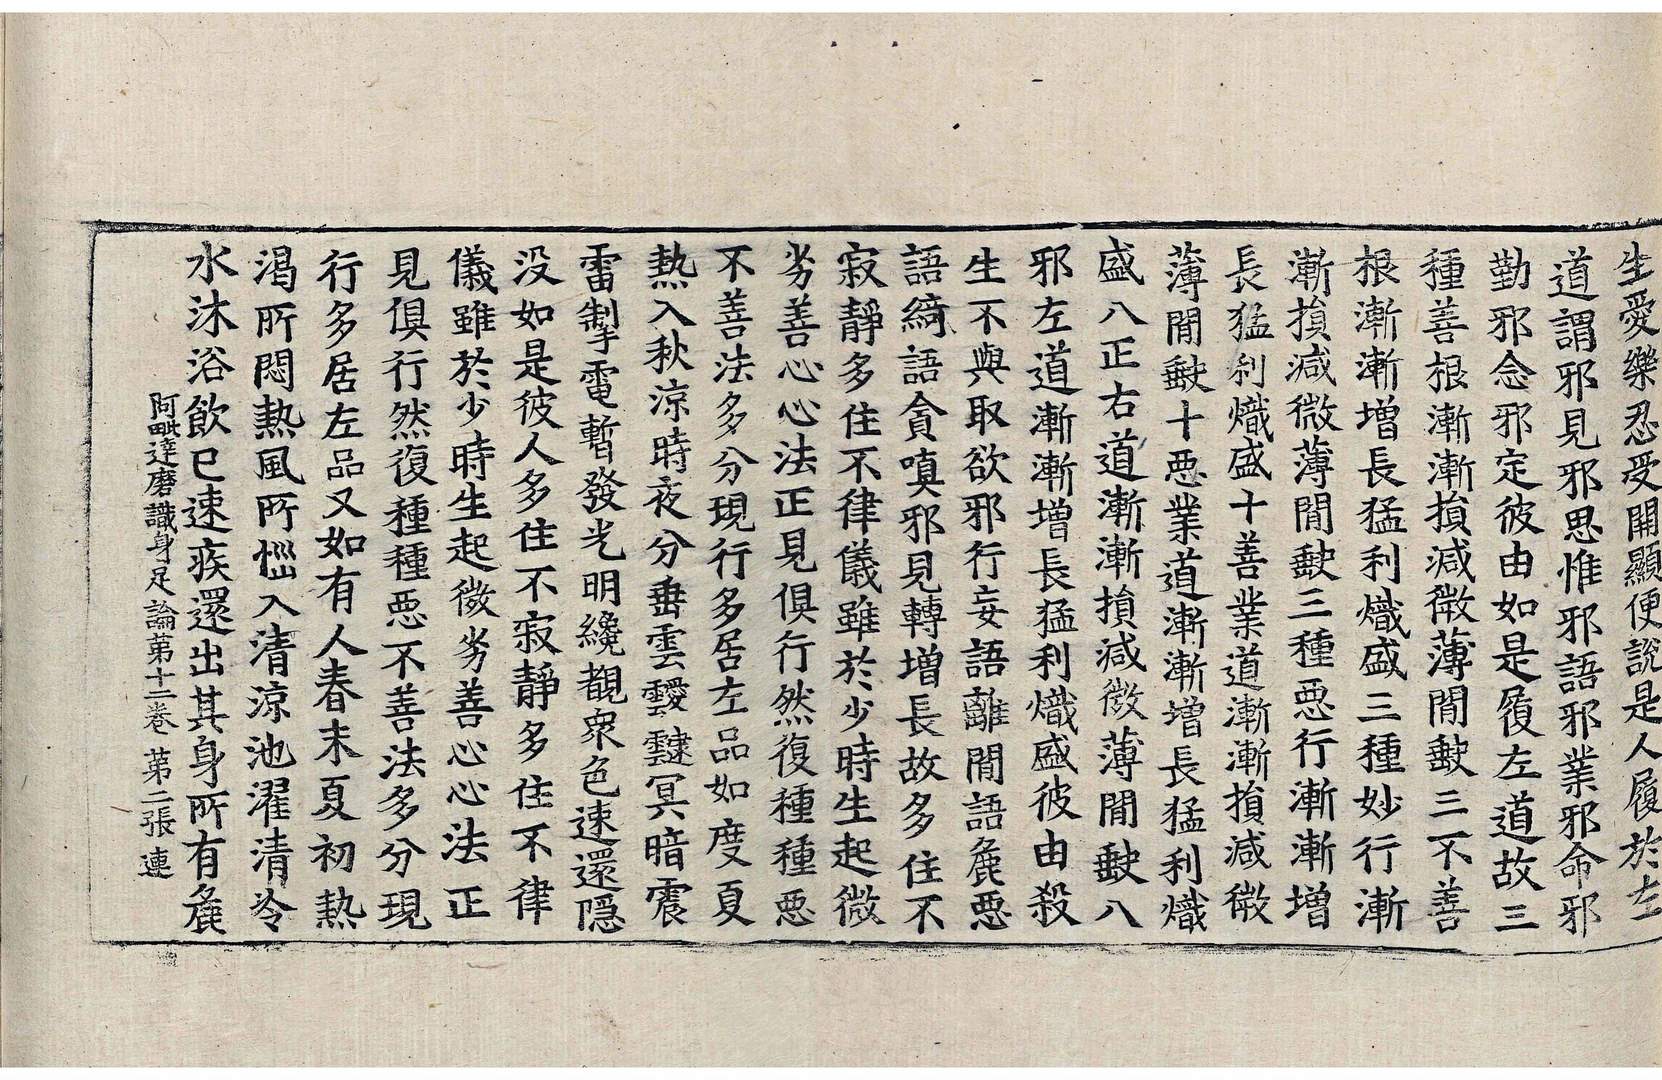 生愛樂忍受開顯便說是人履於左
道謂邪見邪思惟邪語邪業邪命邪
勤邪念邪定彼由如是履左道故三
種善根漸漸損減微薄閒歠三不善
根漸漸增長猛利熾盛三種妙行漸
漸損減微薄閒歠三種惡行漸漸增
長猛利熾盛十善業道漸漸損減微
薄閒歠十惡業道漸漸增長猛利熾
盛八正右道漸漸損減微薄閒歠八
邪左道漸漸增長猛利熾盛彼由殺
生不與取欲邪行妄語離閒語麁惡
語綺語貪嗔邪見轉增長故多住不
寂靜多住不律儀雖於少時生起微
劣善心心法正見俱行然復種種惡
不善法多分現行多居左品如度夏
熱入秋涼時夜分垂雲靉靆冥暗震
雷掣電暫發光明纔觀衆色速還隱
没如是彼人多住不寂靜多住不律
儀雖於少時生起微劣善心心法正
見俱行然復種種惡不善法多分現
行多居左品又如有人春末夏初熱
渴所悶熱風所惱入清涼池濯清冷
水沐浴飲已速疾還出其身所有麁
阿毗達磨識身足論苐十二卷 苐二張 連